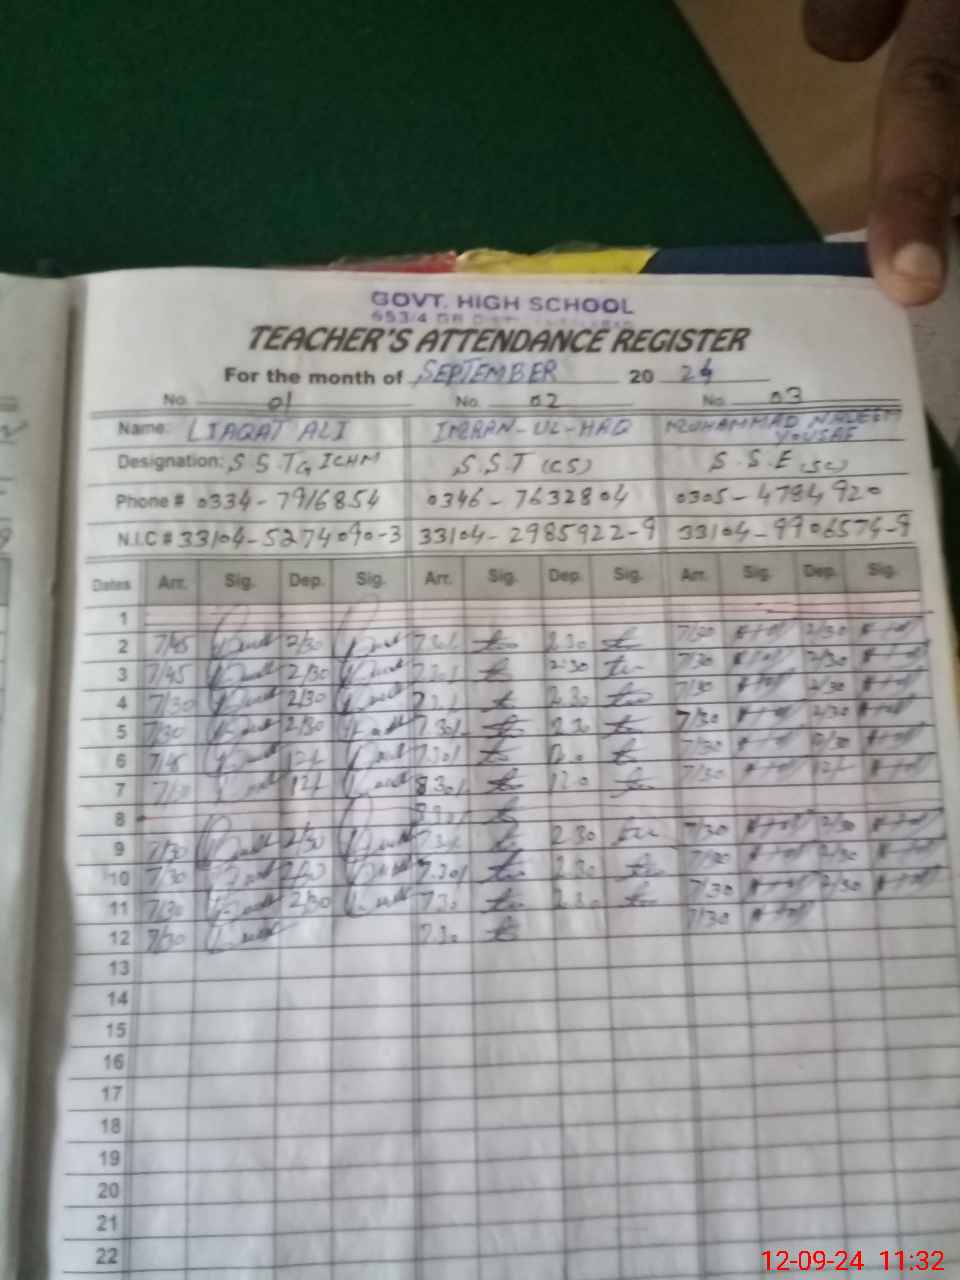 GOVT. HIGH SCHOOL
TEACHER'S ATTENDANCE REGISTER
For the month of SEPTEMBER 20 24
No. 01 No. 02 No. 03
Name: LIAQAT ALI IMRAN-UL-HAQ MUHAMMAD NADEEM
YOUSAF
Designation: S.S.T, ICHM S.S.T (CS) S.S.E (SC)
Phone # 0334-7916854 0346-7632804 0305-4784920
N.I.C # 33104-5274090-3 33104-2985922-9 33104-9906574-9
Dates Arr. Sig. Dep. Sig. Arr. Sig. Dep. Sig. Arr. Sig. Dep. Sig.
1
2 7/45 2/30 7.30 2.30 7/30 2/30
3 7/45 2/30 2.30 7/30 2/30
4 7/30 2/30 2.30 7/30 2/30
5 7/30 2/30 7.30 2.30 7/30 2/30
6 7/45 12/ 7.30 12.0 7/30
7 12/ 8.30 12.0 7/30 12/
8
9 7/30 2/30 7.30 2.30 7/30 2/30
10 7/30 2/30 7.30 2.30 7/30 2/30
11 7/30 2/30 7.30 2.30 7/30 2/30
12 7/30 7.30 7/30
13
14
15
16
17
18
19
20
21
22
12-09-24 11:32